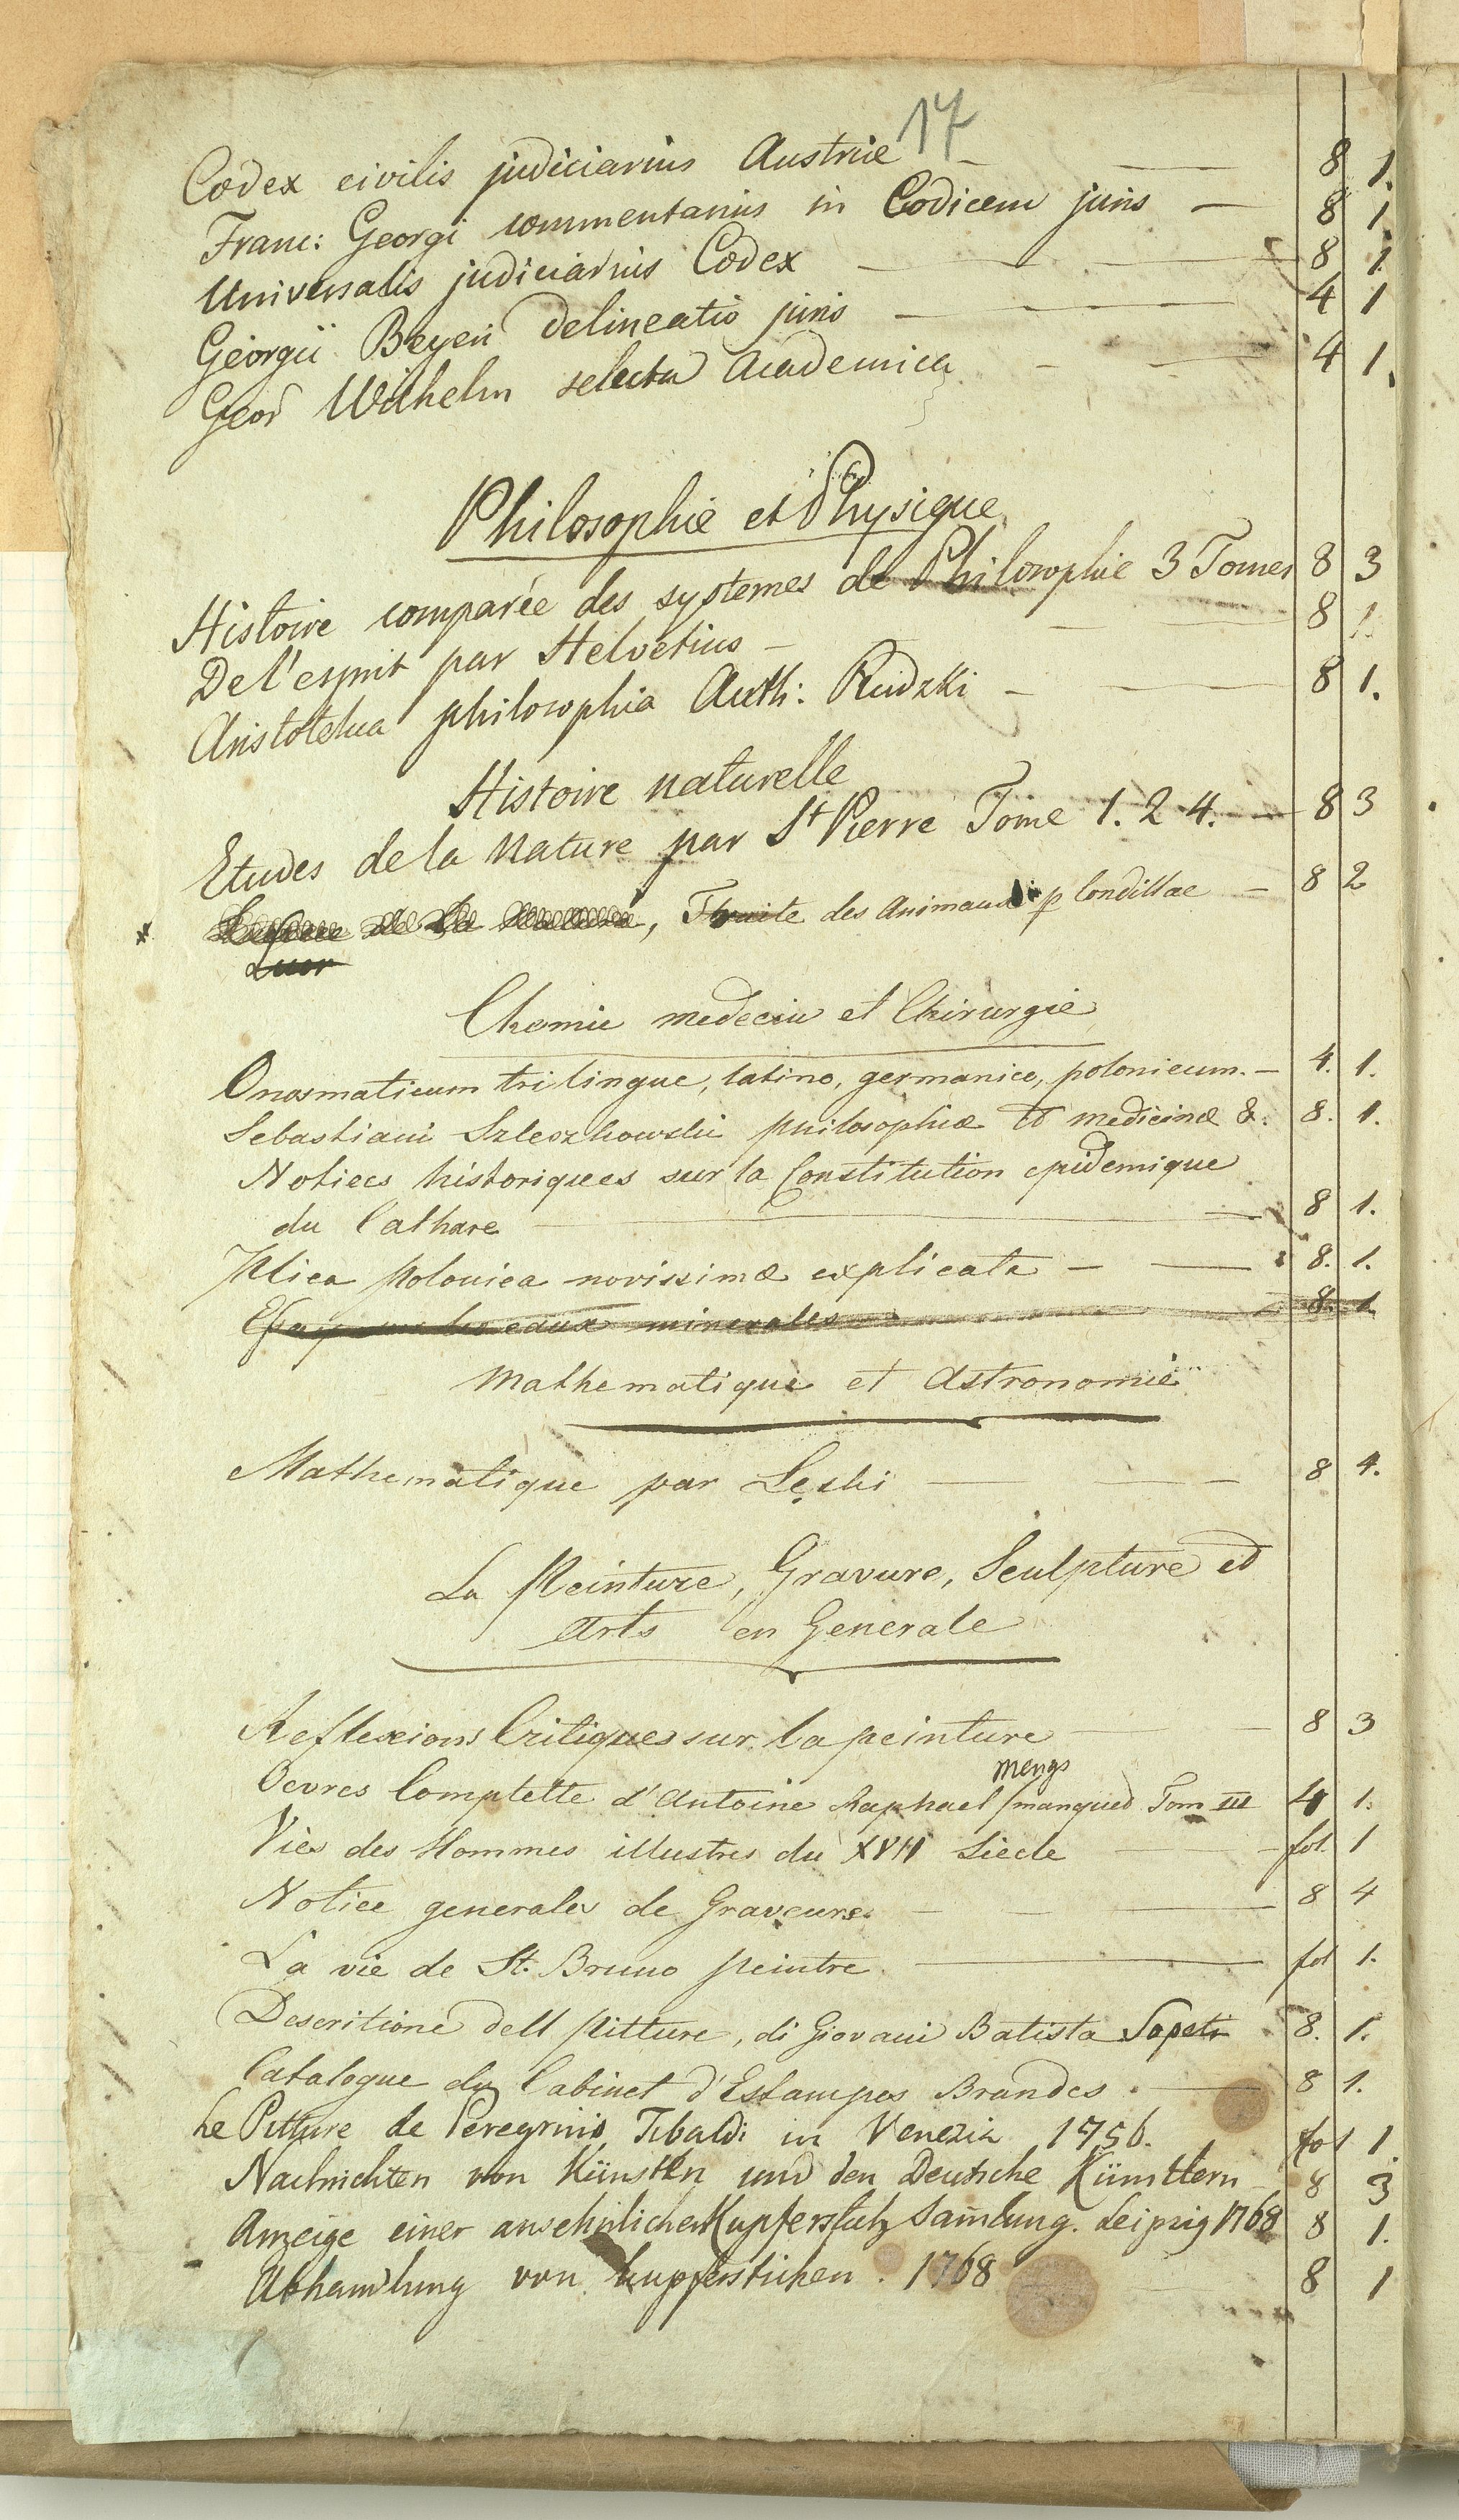 17
Codex civilis judiciarius Austriæ — — 8 1.
Franc: Georgi commentarius in Codicem juris — 8 1
Universalis judiciarius Codex — — 8 1
Georgii Beyeri delineatio juris — — 4 1
Geor Wilhelm selecta Academica - — 4 1.
Philosophie et Physique
Histoire comparée des systemes de Philosophie 3 Tomes 8 3
De l'esprit par Helvetius — — 8 1.
Aristotelica philosophia Auth: Rudzki — — 8 1.
Histoire naturelle
Etudes de la Nature par St Pierre Tome 1. 2 4. — 8 3
de la , Traite des Animaux p Condillac — 8 2
Chemie medecin et Chirurgie
Onosmaticum trilingue, latino, germanico, polonicum. — 4. 1.
Sebastiani Szleszkowski philosophiæ et medicinæ &. 8. 1.
Notices historiques sur la Constitution epidemique
du Cathare — — 8 1.
Plica polonica novissimæ explicata — — 8. 1.
Essay sur les eaux minerales — 8. 1.
Mathematique et Astronomie
Mathematique par Łęski — — 8 4.
La Peinture, Gravure, Sculpture et
Arts en Generale
Reflexions Critiques sur la peinture — 8 3
Mengs
Oevres Complette d'Antoine Raphael /manqued Tom III 4 1.
Vies des Hommes illustres du XVII Siecle — fol. 1
Notice generales de Graveurs. — — 8 4
La vie de St. Bruno peintre. — fol 1.
Descritione dell pitture, di Giovani Batista 8. 1.
Catalogue du Cabinet d'Estampes Brandes. — 8 1.
Le Pitture de Peregrinio Tibaldi in Venezia 1756. fol 1.
Nachrichten von Künstln und den Deutsche Künstlern — 8 3
Anzeige einer ansehnlichen Kupferstich Samlung. Leipzig 1768 8 1.
Abhandlung von kupferstichen. 1768 8 1